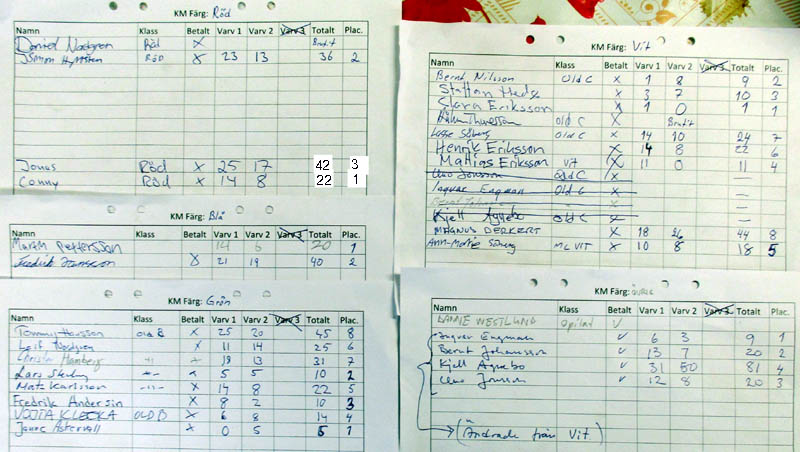 KM Färg: Röd
Namn Klass Betalt Varv 1 Varv 2 Varv 3 Totalt Plac.
Daniel Nodgren Röd X Brutit
Simon RÖD X 23 13 36 2
Jonas Röd X 25 17 42 3
Conny Röd X 14 8 22 1
KM Färg: Blå
Namn Klass Betalt Varv 1 Varv 2 Varv 3 Totalt Plac.
Martin Pettersson 14 6 20 1
Fredrik Jonsson X 21 19 40 2
KM Färg: Grön
Namn Klass Betalt Varv 1 Varv 2 Varv 3 Totalt Plac.
Tommy Hansson Old B X 25 20 45 8
Leif Nodgren X 11 14 25 6
Christer Hamberg -"- X 18 13 31 7
Lars -"- X 5 5 10 2
Mats Karlsson -"- X 14 8 22 5
Fredrik Andersin X 8 2 10 3
VOJTA KLECKA OLD B X 6 8 14 4
Janne Astervall X 0 5 5 1
KM Färg: Vit
Namn Klass Betalt Varv 1 Varv 2 Varv 3 Totalt Plac.
Bernt Nilsson Old C X 1 8 9 2
Staffan Hedz X 3 7 10 3
Clara Eriksson X 1 0 1 1
Thuresson Old C X Brutit
Lasse Söberg Old C X 14 10 24 7
Henrik Eriksson X 14 8 22 6
Mattias Eriksson Vit X 11 0 11 4
Uno Jonsson Old C X —
Ingvar Engman Old C X —
X —
Kjell Agnebo Old C X —
MAGNUS DERKERT X 18 26 44 8
Ann-Marie Söberg MC VIT X 10 8 18 5
KM Färg: ÖVRIG
Namn Klass Betalt Varv 1 Varv 2 Varv 3 Totalt Plac.
WESTLUND V
Ingvar Engman V 6 3 9 1
Bernt Johansson V 13 7 20 2
Kjell Agnebo V 31 50 81 4
Uno Jonsson V 12 8 20 3
(Ändrade från Vit)